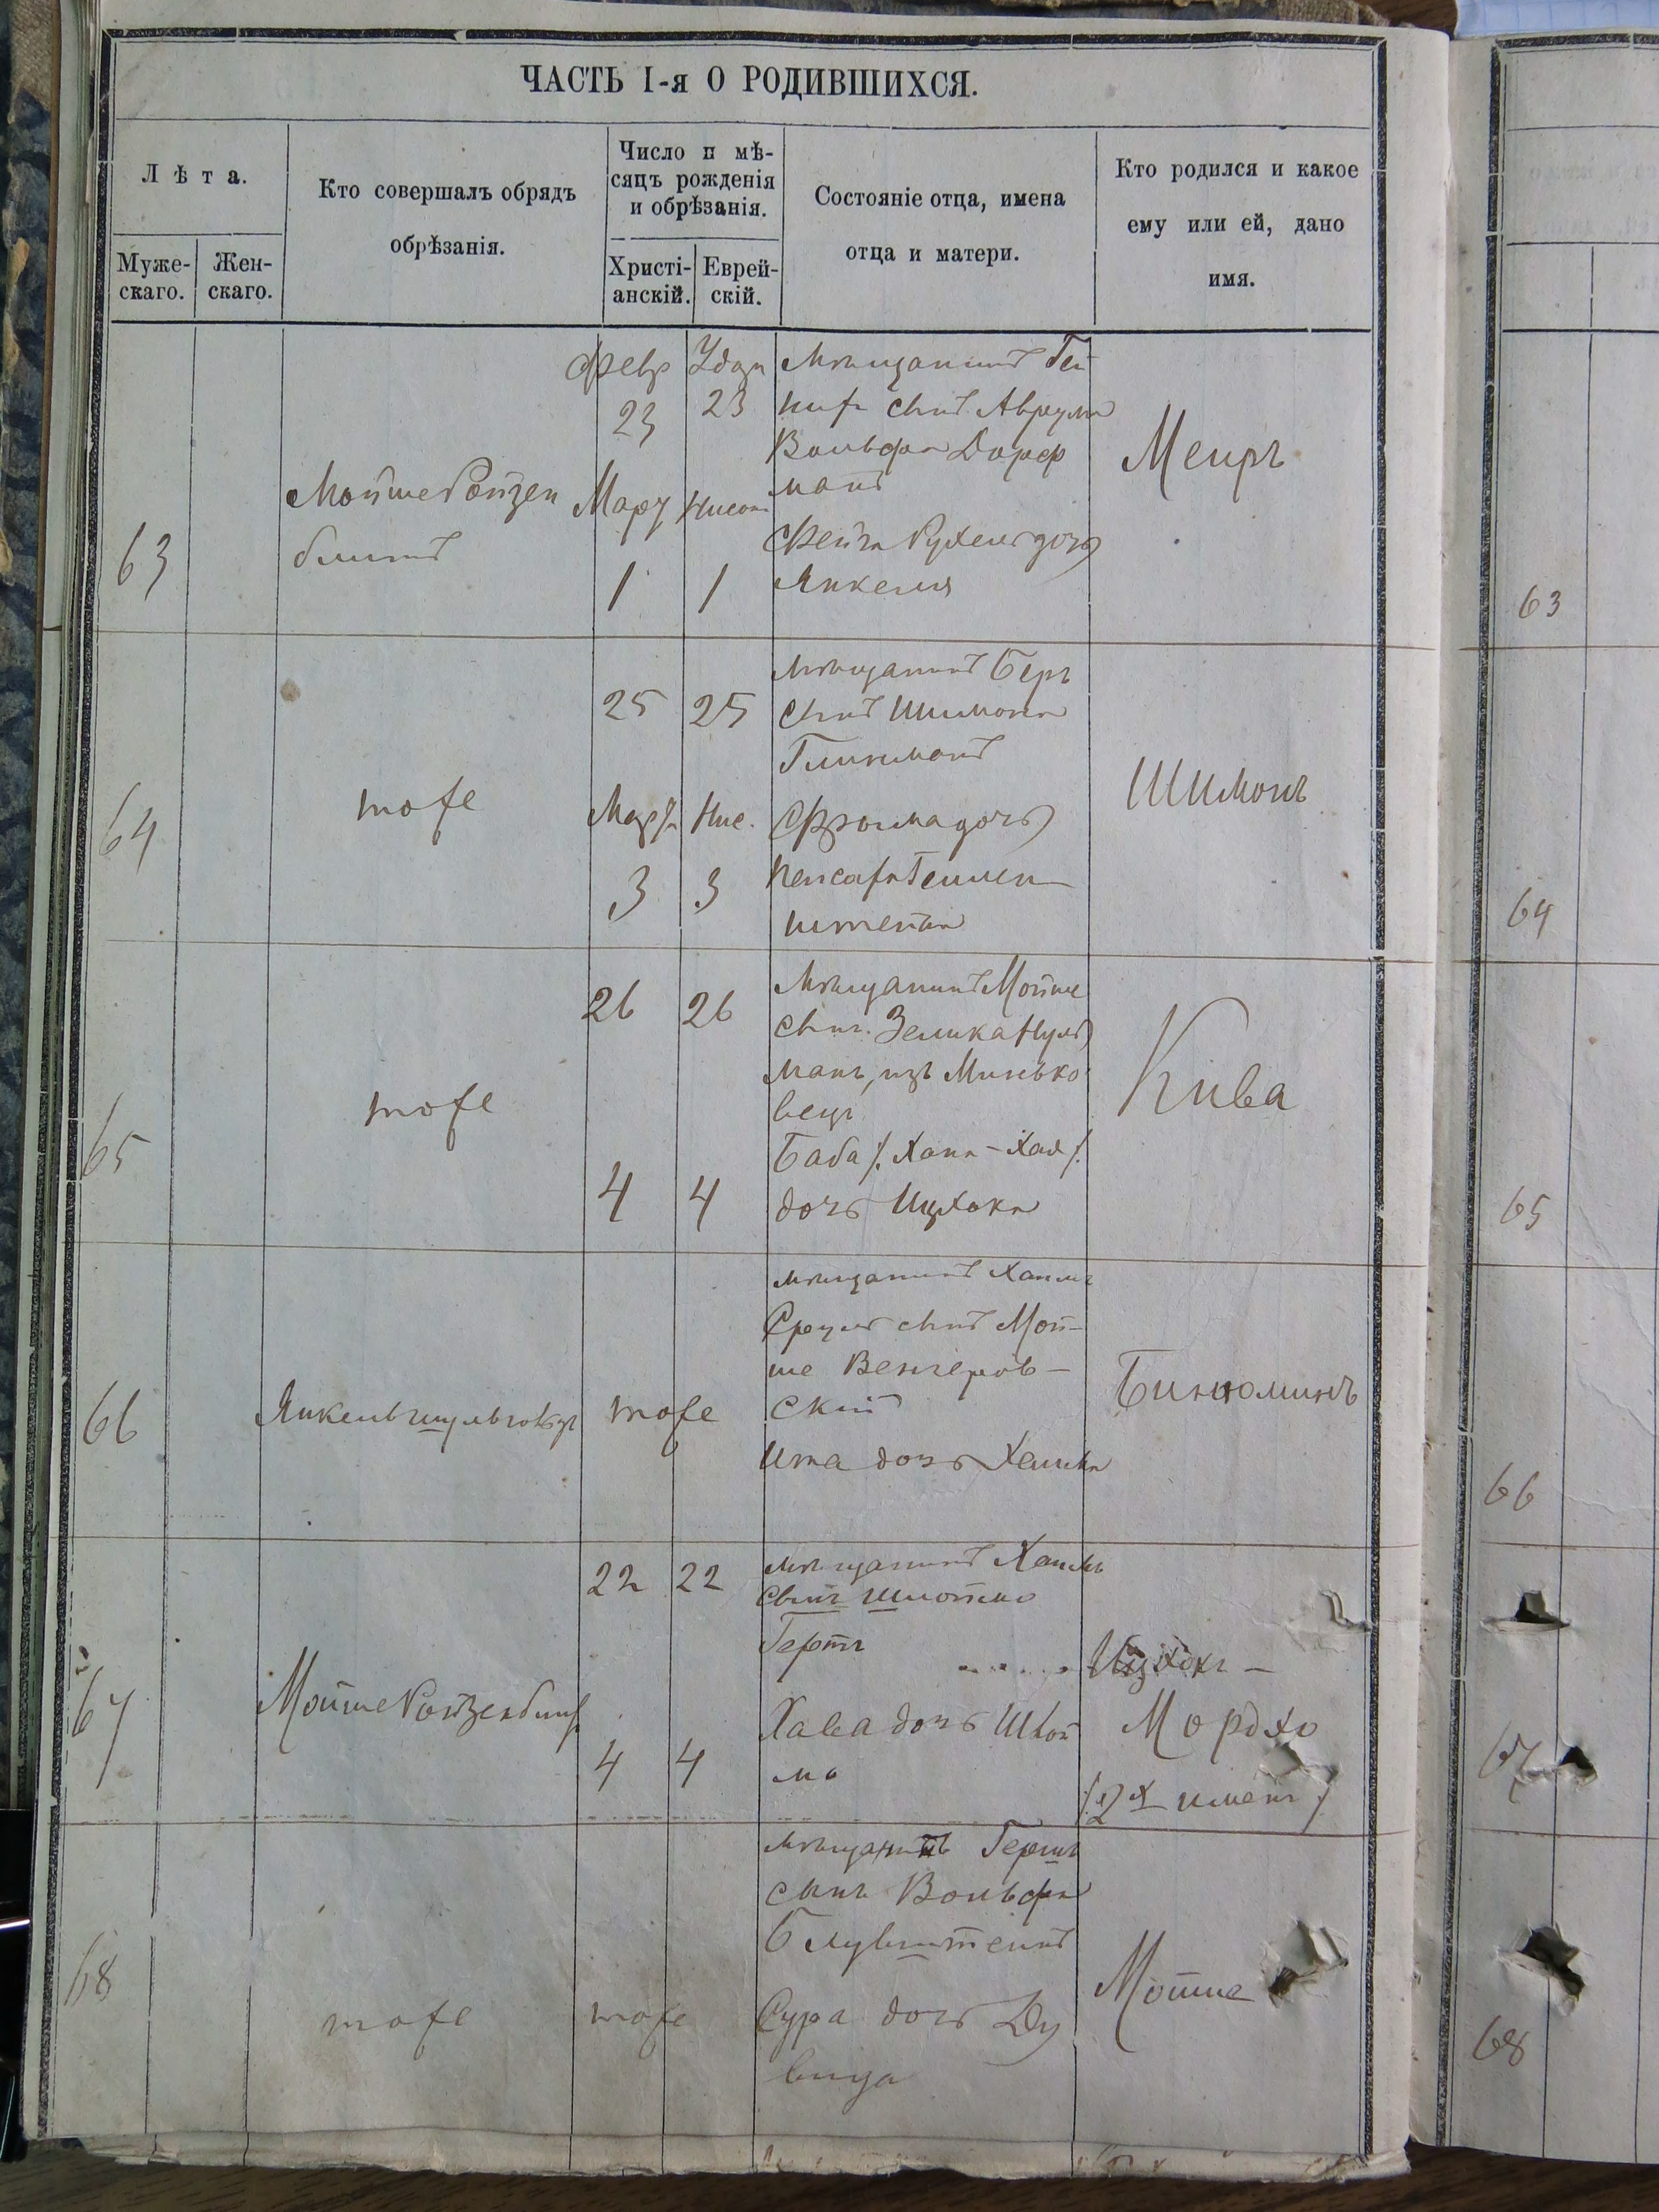 ЧАСТЬ I-я О РОДИВШИХСЯ.
Лѣта.
Муже-
скаго.
Жен-
скаго.
Кто совершалъ обрядъ
обрѣзанія.
Число и мѣ-
сяцъ рожденія
и обрѣзанія.
Христі-
анскій.
Еврей-
скій.
Состояніе отца, имена
отца и матери.
Кто родился и какое
ему или ей, дано
имя.
63
Мойше Ройзен
блитъ
Февр
23
Мар
1
Удар
23
Нисон
1
Мѣщанинъ
сынъ Аврума
Вольфа Дорф
манъ
Фейга Рухель дочь
Янкеля
Меиръ
63
64
тоже
25
Мар
3
25
Нис.
3
мѣщанинъ Беръ
сынъ Шимона
Глизманъ
Фрима дочь
Шимонъ
64
65
тоже
26
4
26
4
Мѣщанинъ Мойше
сынъ Зелика
манъ, изъ Минько
вецъ
Баба /. Хана-Хая /.
дочь Ицхока
Кива
65
66
Янкель
тоже
мѣщанинъ Хаимъ
Сруль сынъ Мой-
ше Венгеров-
скій
Ита дочь
Бинюминъ
66
67
Мойше Ройзенблит
22
4
22
4
мѣщанинъ Хаимъ
сынъ Шлоймо
Хава дочь Шлой
мо
Ицхокъ -
Мордхо
/. 2х именъ /
67
68
тоже
тоже
мѣщанинъ Гершъ
сынъ Вольфа
Блувштейнъ
Сура дочь Ду
вида
Мойше
68